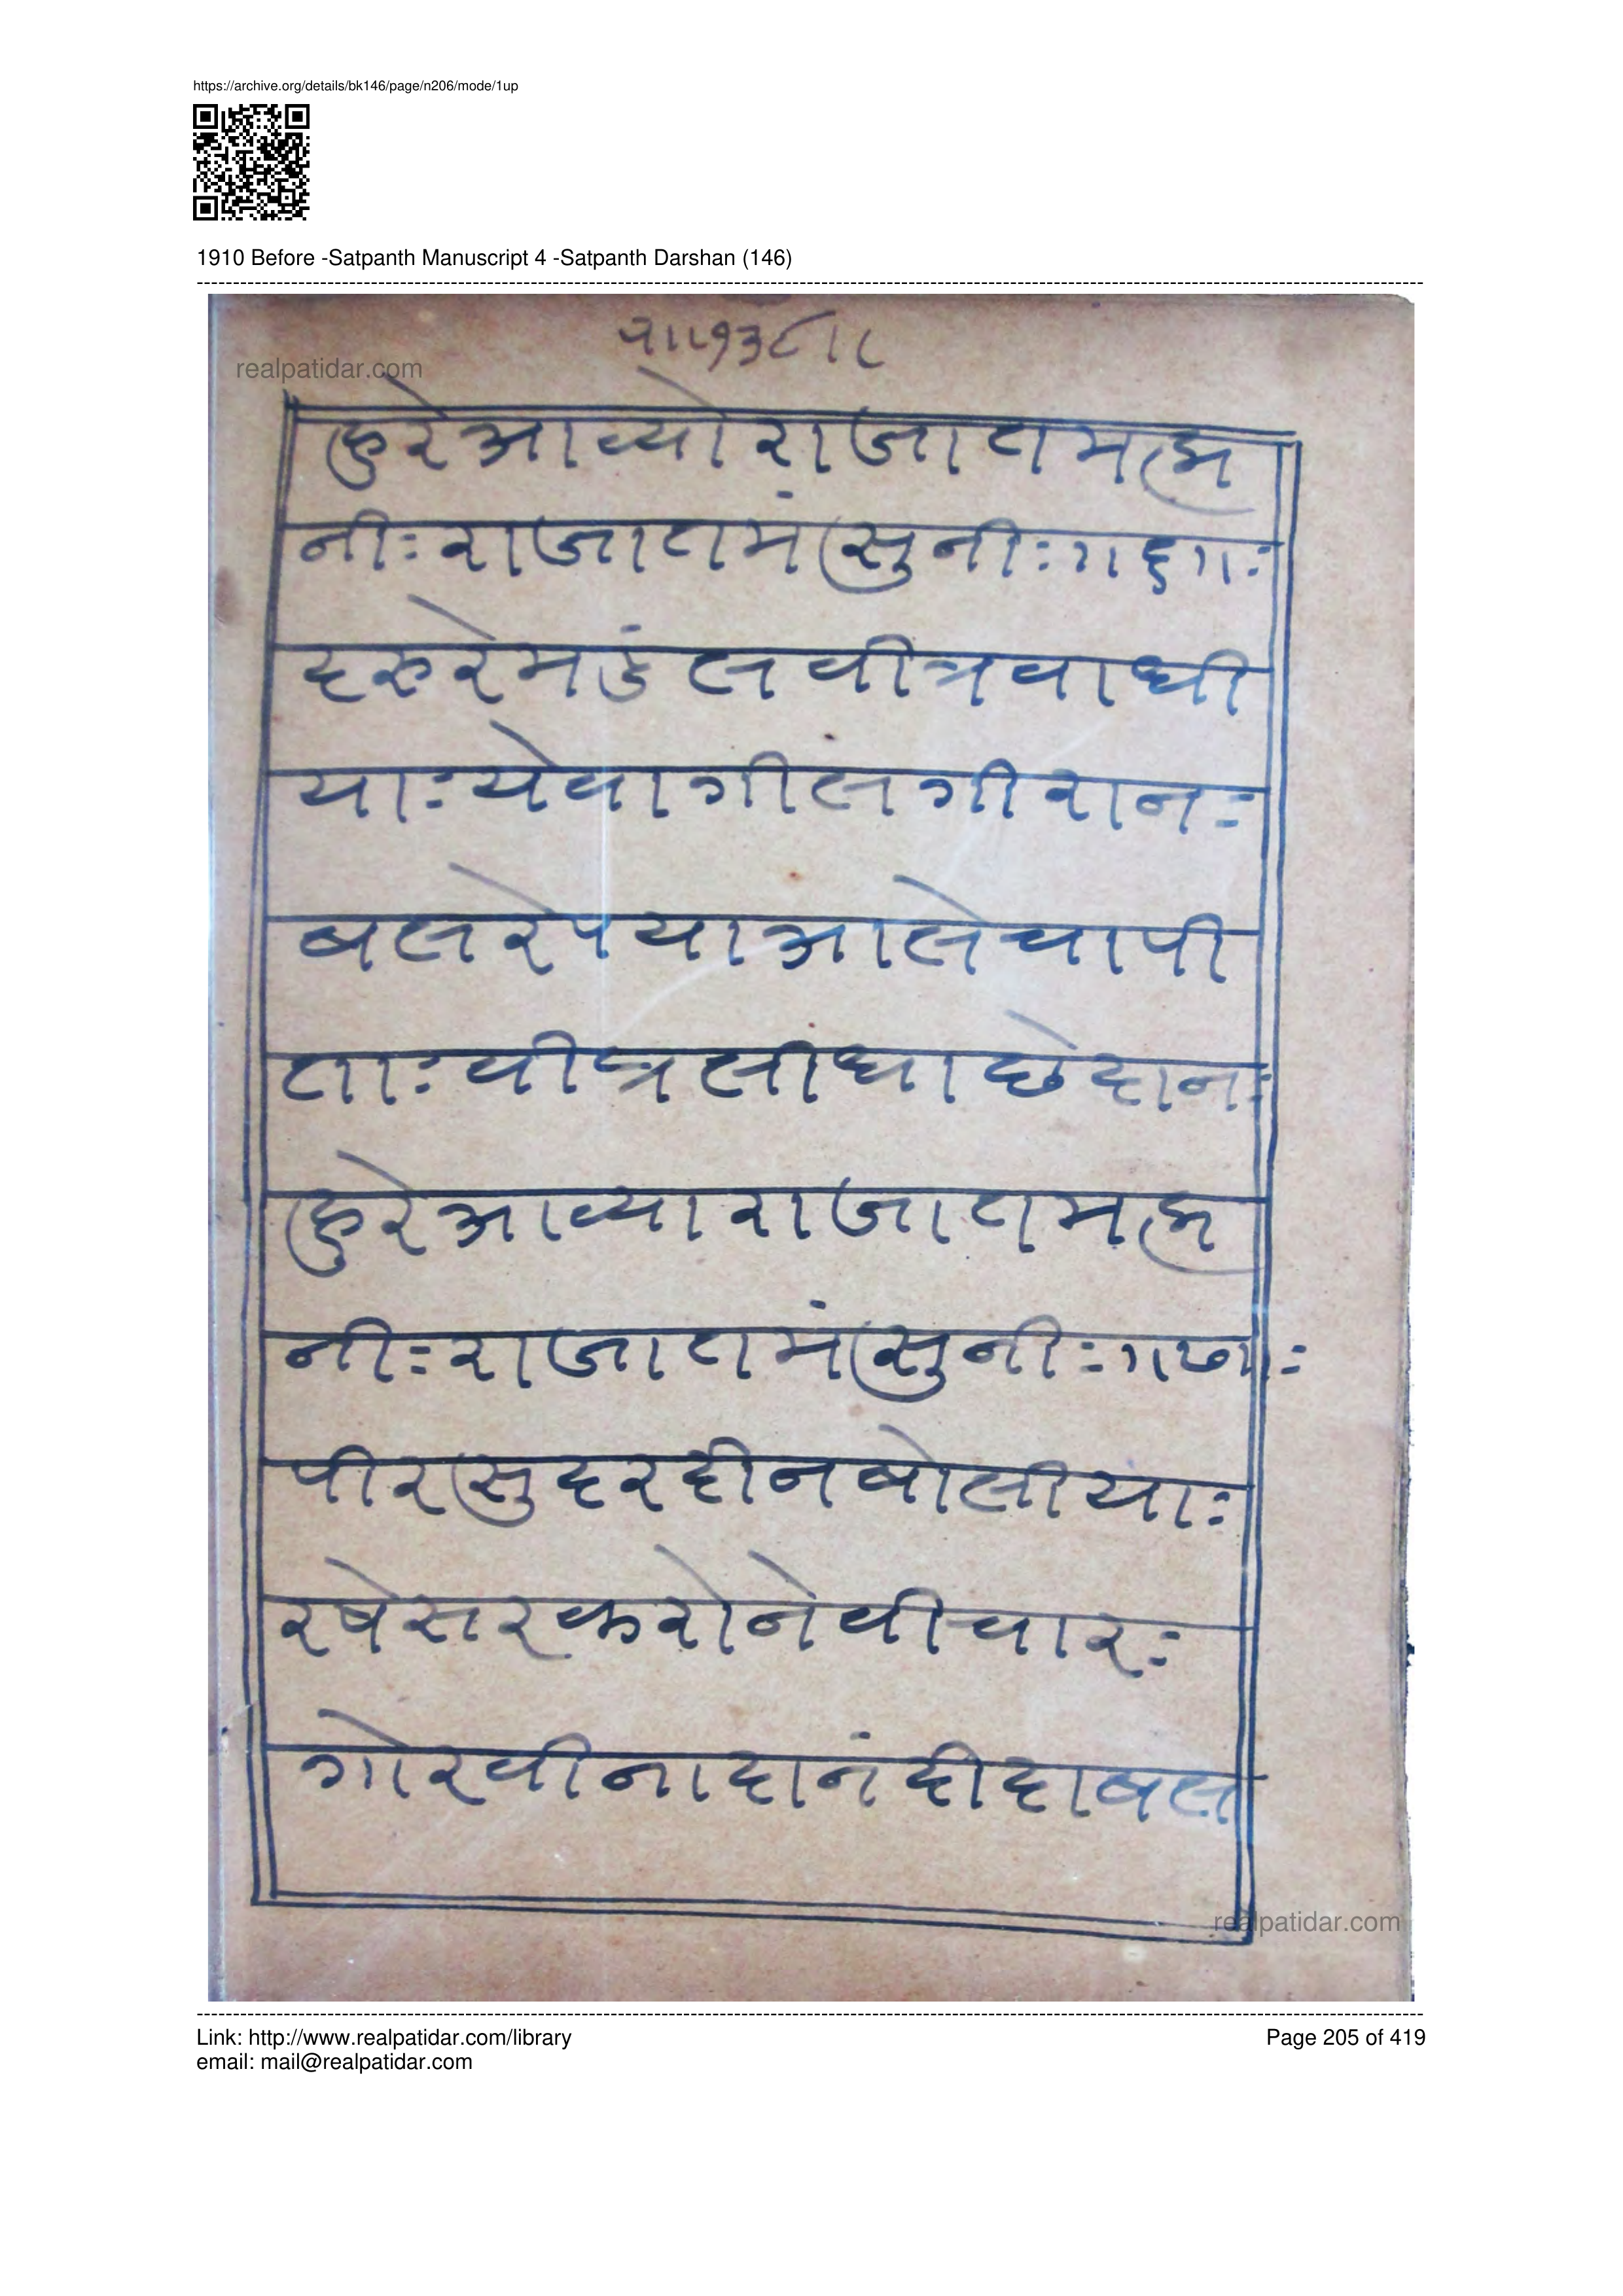 https://archive.org/details/bk146/page/n206/mode/1up
1910 Before -Satpanth Manuscript 4 -Satpanth Darshan (146)
realpatidar.com
हुरेआव्योराजातमब्रा
नीःराजातमंसुनीः॥६॥ः
हरुरेमडंलवीत्रवाधी
याःयेवागीलगीरानः
बलरेपयाआलेचापी
ताःवीत्रलीधाछेदानः
हुरेआव्याराजातमब्रा
नीः राजातमंसुनीः॥७॥ः
पीरसुदरदीनबोलीयाः
रषेसरकरोनेवीचारः
गोरवीनादानंदीदाबल
realpatidar.com
Link: http://www.realpatidar.com/library
Page 205 of 419
email: mail@realpatidar.com